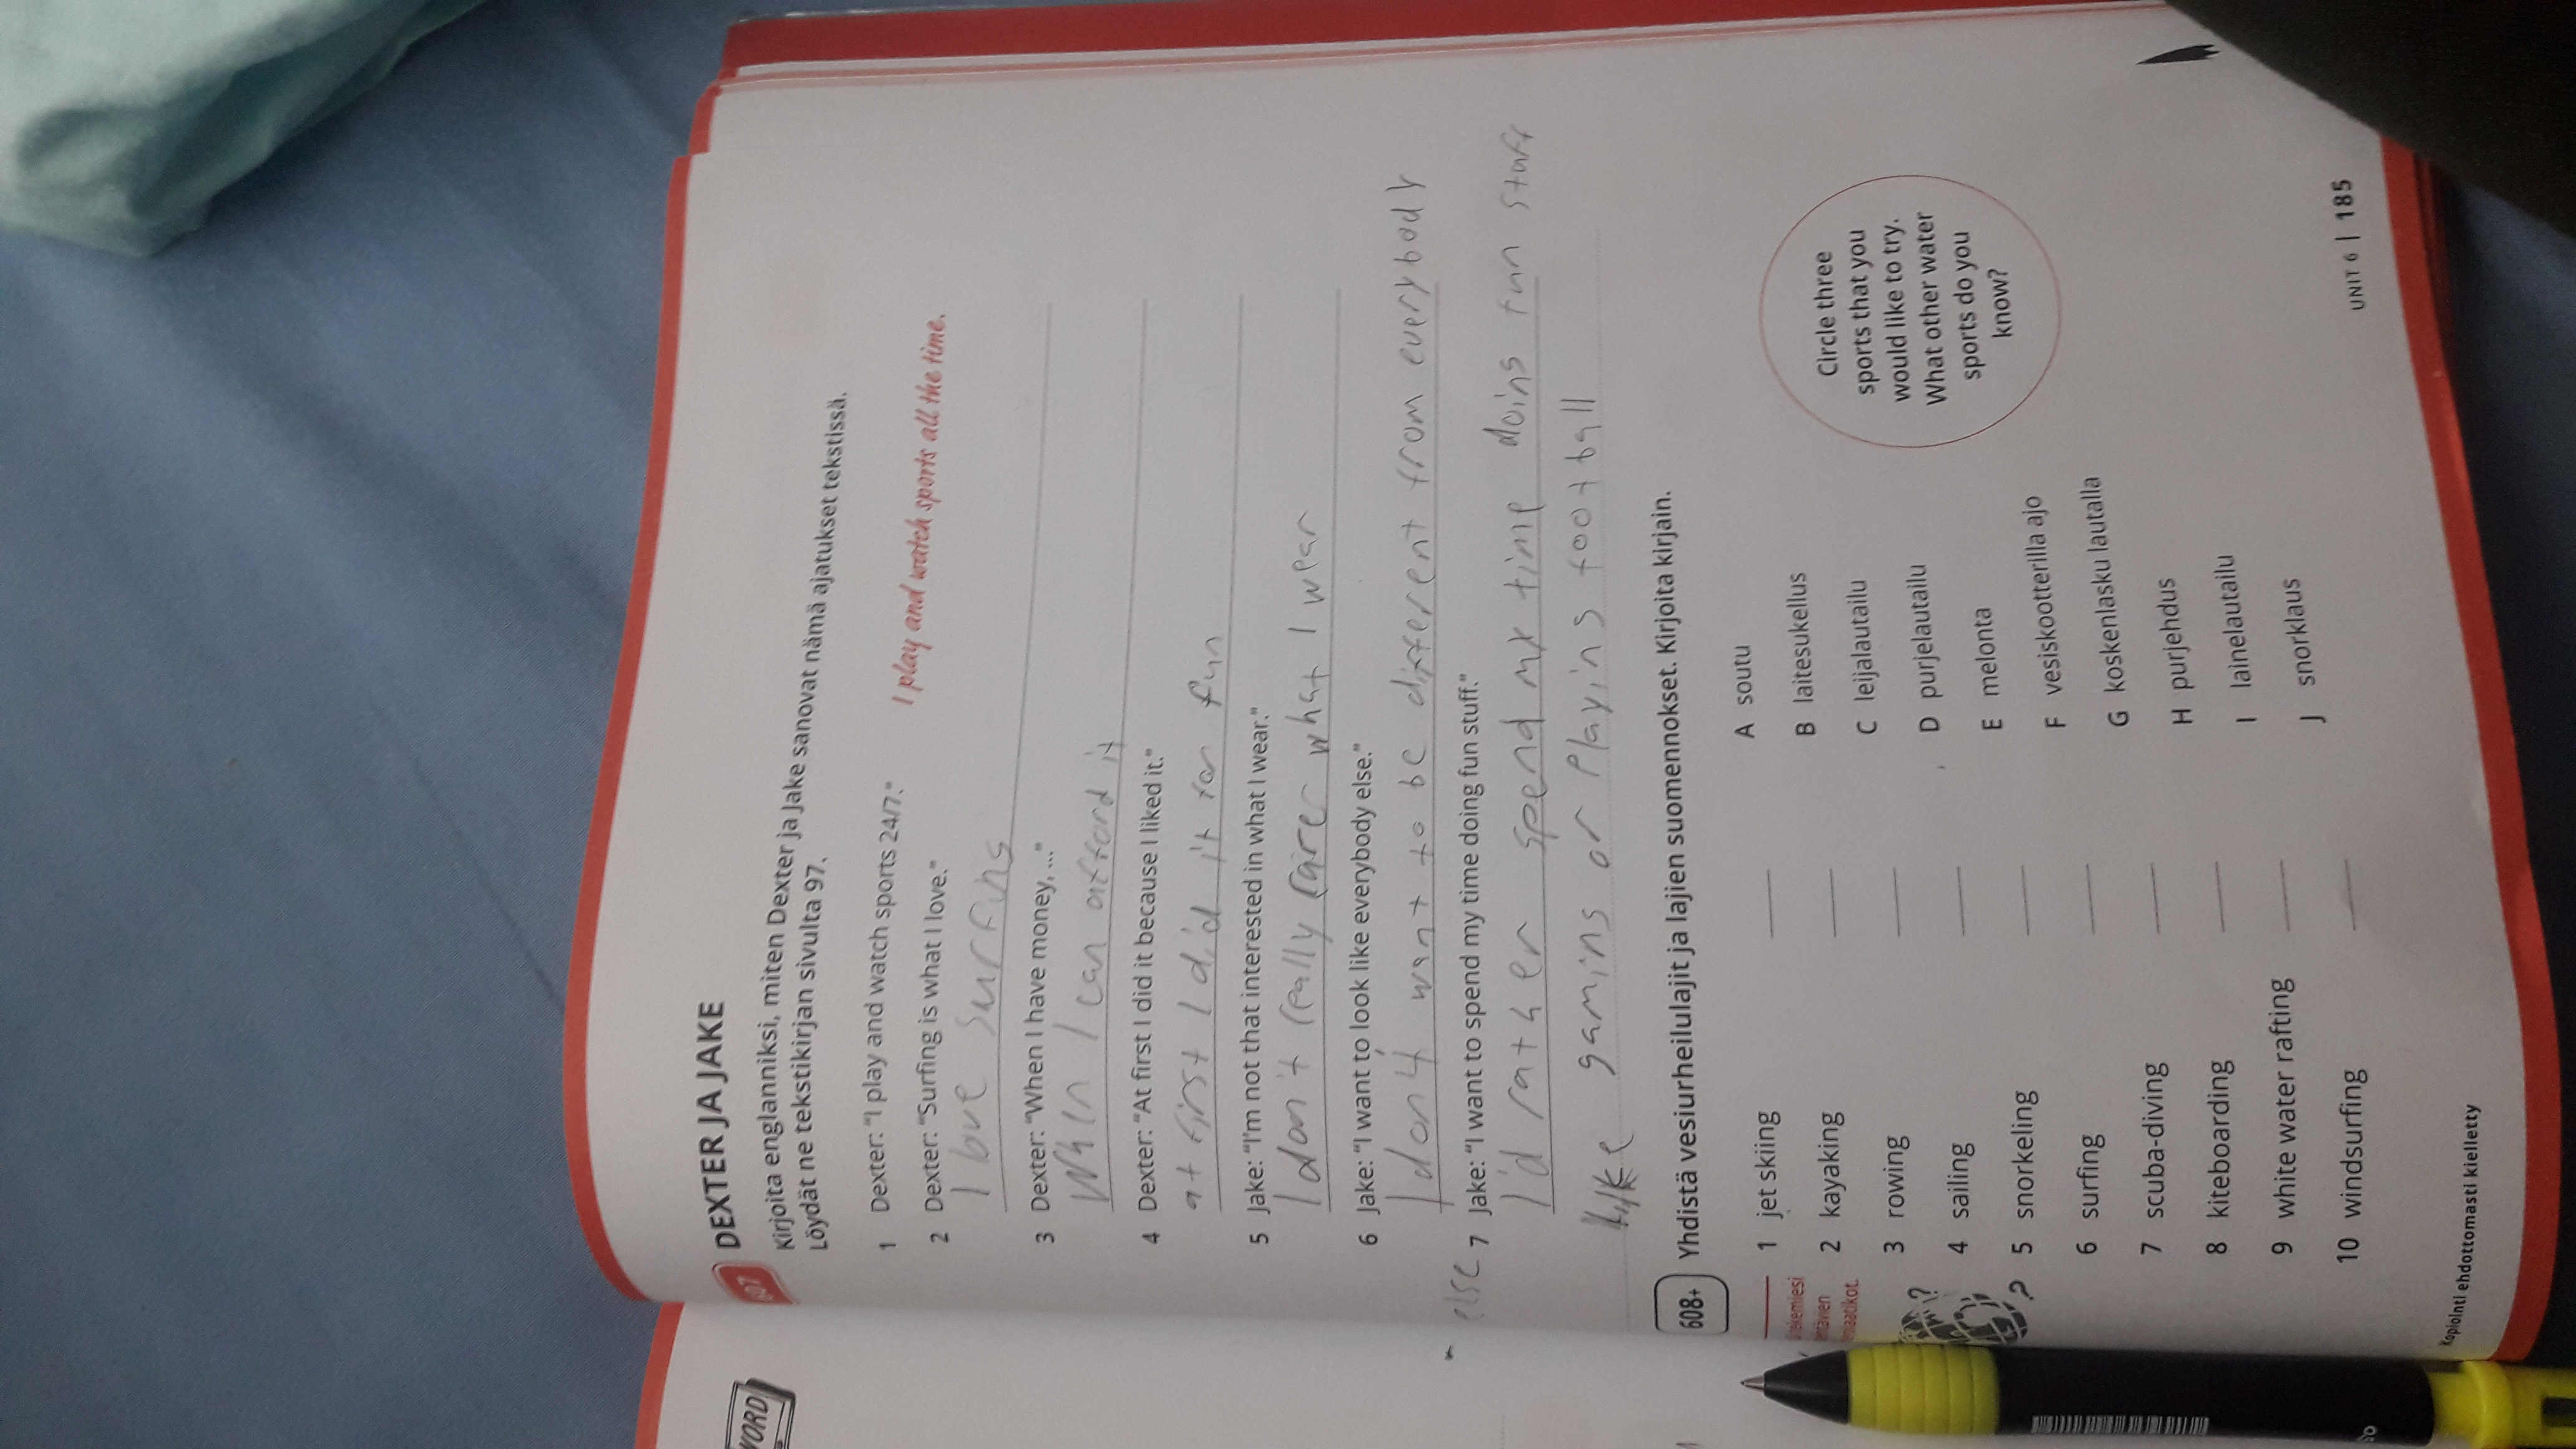 WORD
607 DEXTER JA JAKE
Kirjoita englanniksi, miten Dexter ja Jake sanovat nämä ajatukset tekstissä.
Löydät ne tekstikirjan sivulta 97.
1 Dexter: "I play and watch sports 24/7." I play and watch sports all the time.
2 Dexter: "Surfing is what I love."
I love surfing
3 Dexter: "When I have money, ..."
When I can afford it
4 Dexter: "At first I did it because I liked it."
at first I did it for fun
5 Jake: "I'm not that interested in what I wear."
I don't really care what I wear
6 Jake: "I want to look like everybody else."
I don't want to be different from everybody
else
7 Jake: "I want to spend my time doing fun stuff."
I'd rather spend my time doing fun stuff
like gaming or playing football
608+ Yhdistä vesiurheilulajit ja lajien suomennokset. Kirjoita kirjain.
1 jet skiing
2 kayaking
3 rowing
4 sailing
5 snorkeling
6 surfing
7 scuba-diving
8 kiteboarding
9 white water rafting
10 windsurfing
A soutu
B laitesukellus
C leijalautailu
D purjelautailu
E melonta
F vesiskootterilla ajo
G koskenlasku lautalla
H purjehdus
I lainelautailu
J snorklaus
Circle three
sports that you
would like to try.
What other water
sports do you
know?
Kopiointi ehdottomasti kielletty
UNIT 6 | 185